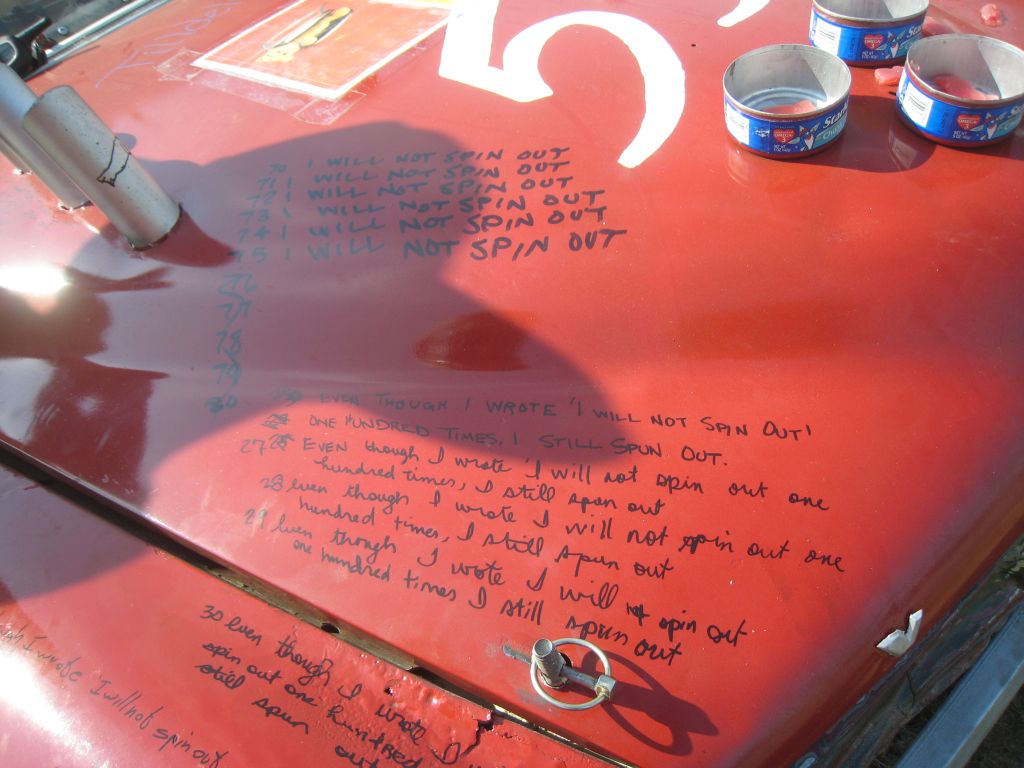 5
70 I WILL NOT SPIN OUT
71 I WILL NOT SPIN OUT
72 I WILL NOT SPIN OUT
73 I WILL NOT SPIN OUT
74 I WILL NOT SPIN OUT
75 I WILL NOT SPIN OUT
76
77
78
79
80
EVEN THOUGH I WROTE 'I WILL NOT SPIN OUT'
ONE HUNDRED TIMES, I STILL SPUN OUT.
27 EVEN though I wrote 'I will not spin out one
hundred times, I still spun out
28 even though I wrote I will not spin out one
hundred times, I still spun out
29 even though I wote I will not spin out
one hundred times I still spun out
30 even though I wrote I
spin out one hundred
still spun out
I wrote I will not spin out